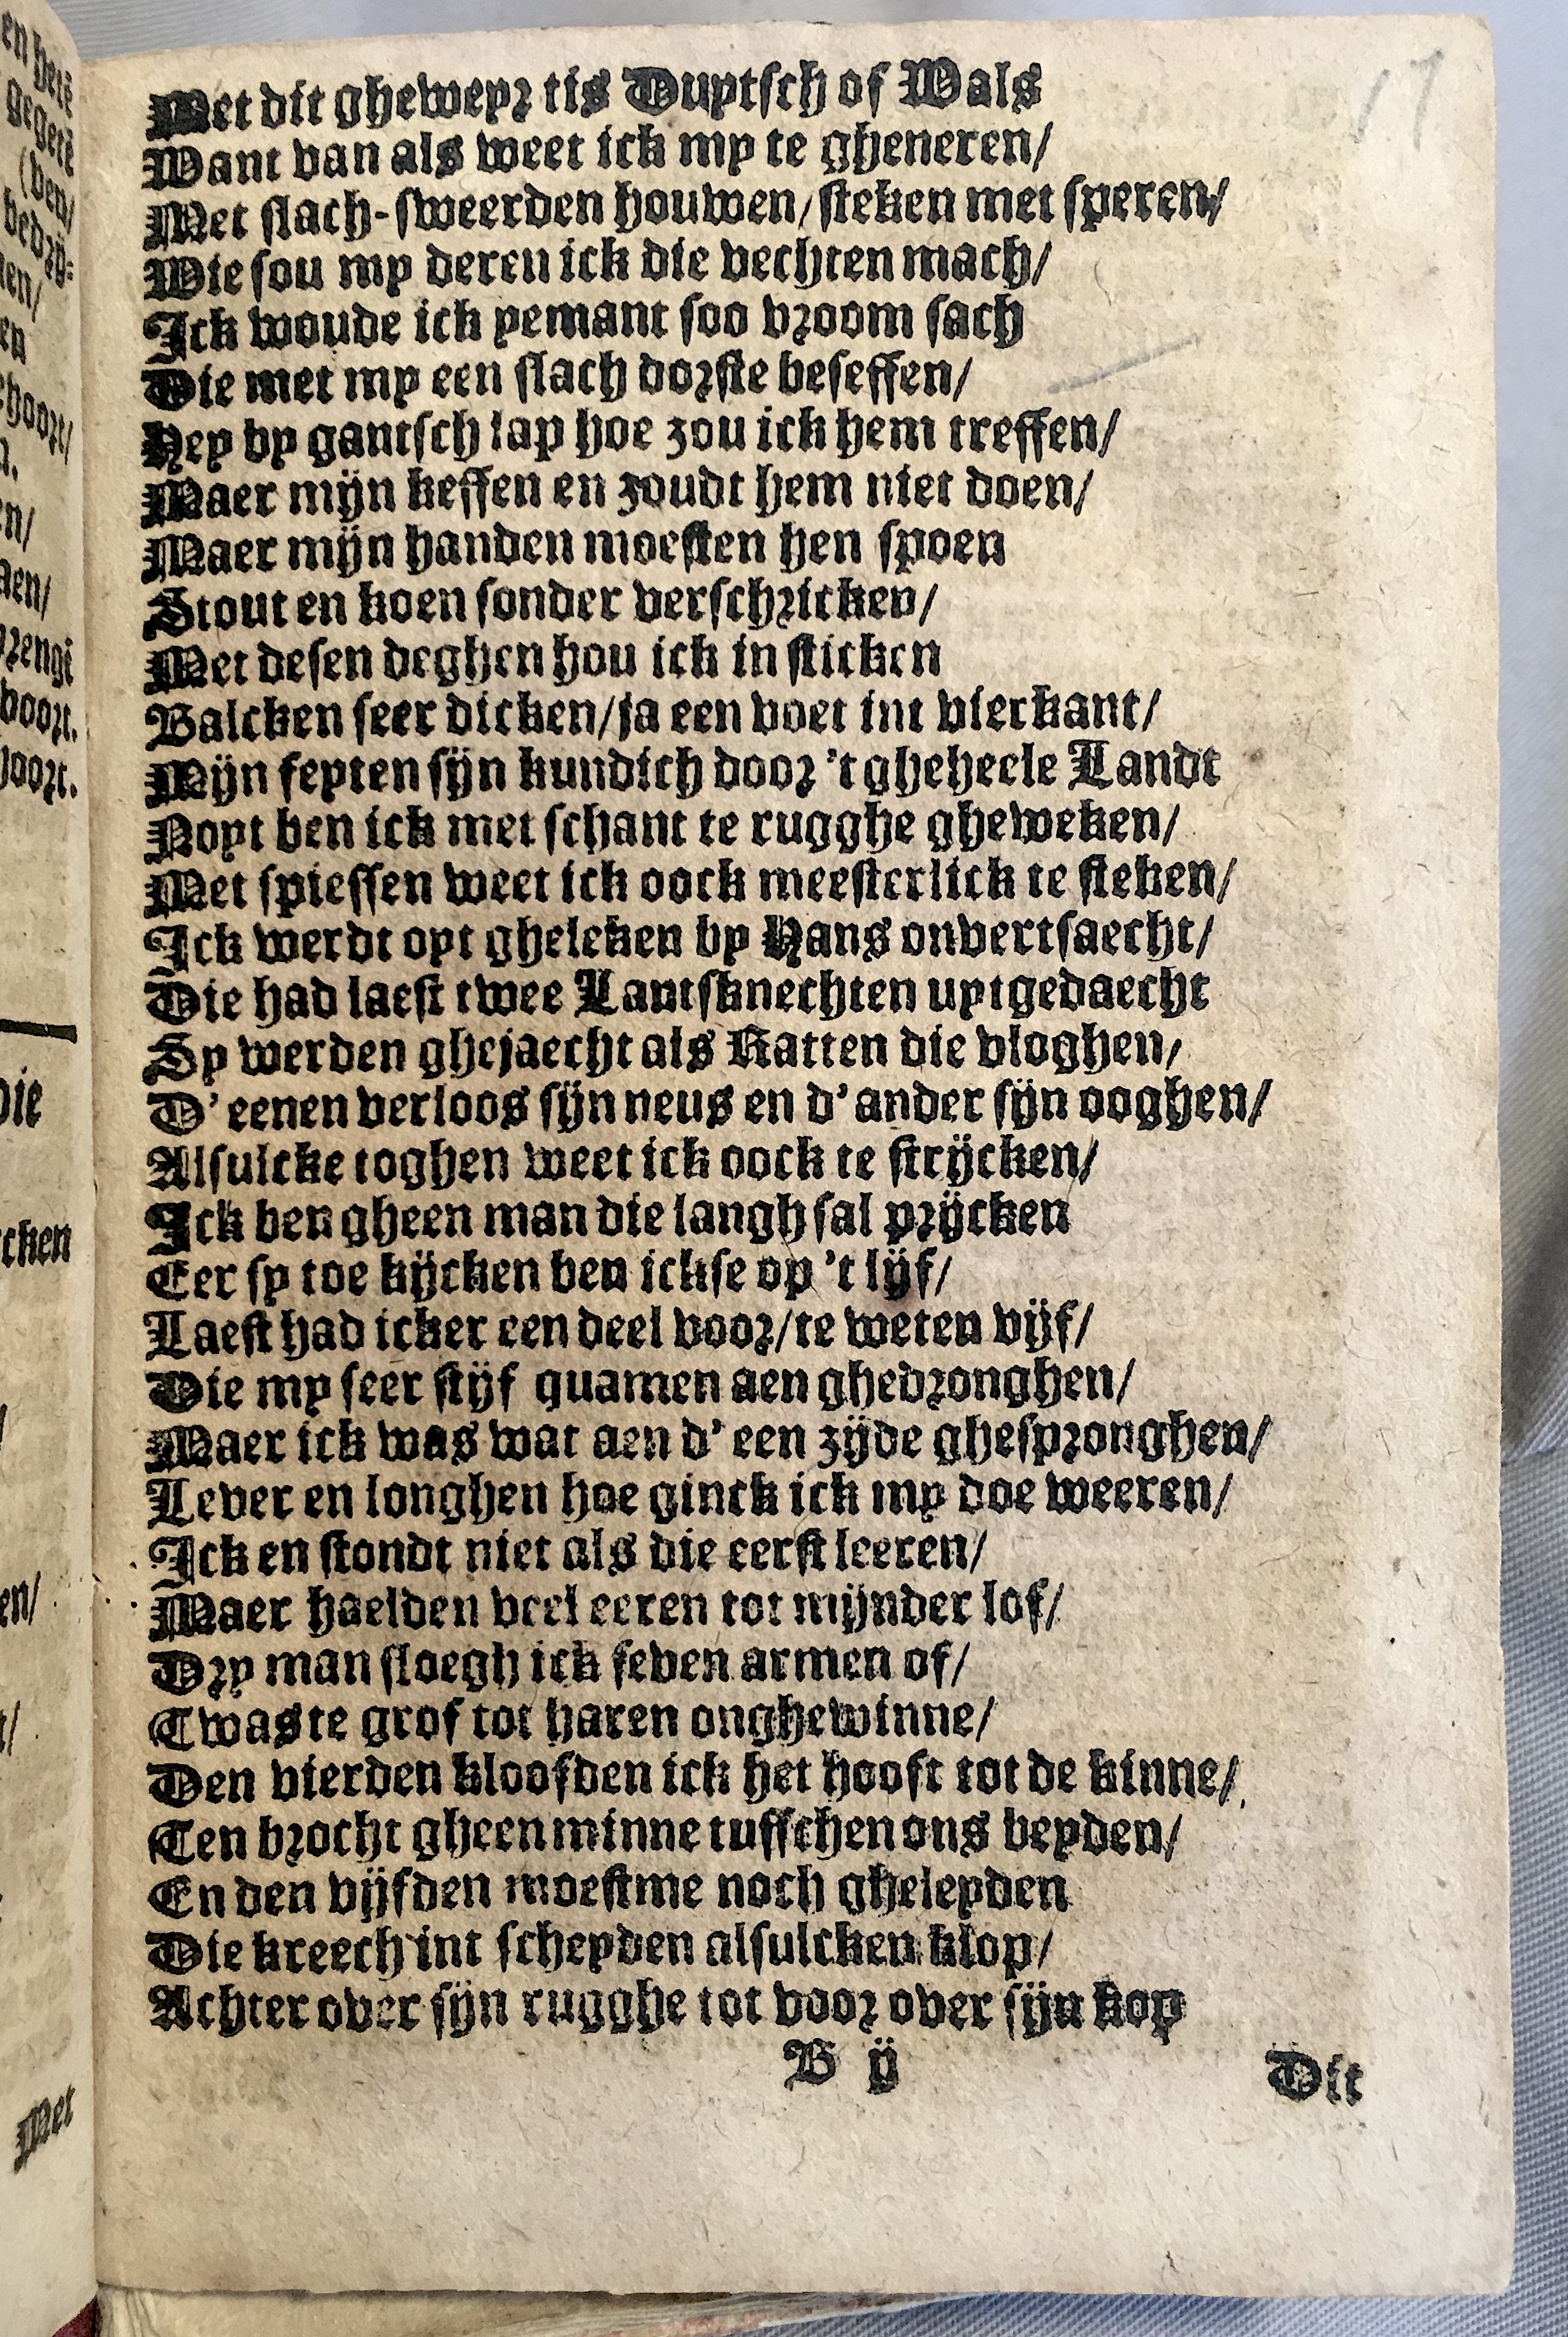 17
Met dit gheweyr tis Duytsch of Wals
Want van als weet ick my te gheneren/
Met slach-sweerden houwen/steken met speren/
Wie sou my deren ick die vechten mach/
Ick woude ick yemant soo vroom sach
Die met my een slach dorste beseffen/
Hey by gantsch lap hoe zou ick hem treffen/
Maer mijn keffen en zoudt hem niet doen/
Maer mijn handen moesten hen spoen
Stout en koen sonder verschricken/
Met desen deghen hou ick in sticken
Balcken seer dicken/ja een voet int vierkant/
Mijn feyten sijn kundich door 't gheheele Landt
Noyt ben ick met schant te rugghe gheweken/
Met spiessen weet ick oock meesterlick te steken/
Ick werdt oyt gheleken by Hans onvertsaecht/
Die had laest twee Lantsknechten uytgedaecht
Sy werden ghejaecht als Katten die vloghen/
D' eenen verloos sijn neus en d' ander sijn ooghen/
Alsulcke toghen weet ick oock te strijcken/
Ick ben gheen man die langh sal prijcken
Eer sy toe kijcken ben ickse op 't lijf/
Laest had icker een deel voor/te weten vijf/
Die my seer stijf quamen aen ghedronghen/
Maer ick was wat aen d' een zijde ghespronghen/
Lever en longhen hoe ginck ick my doe weeren/
Ick en stondt niet als die eerst leeren/
Maer haelden veel eeren tot mijnder lof/
Dry man sloegh ick seven armen of/
Twas te grof tot haren onghewinne/
Den vierden kloofden ick het hooft tot de kinne/
Ten brocht gheen minne tusschen ons beyden/
En den vijfden moestme noch gheleyden
Die kreech int scheyden alsulcken klop/
Achter over sijn rugghe tot voor over sijn kop
B ij
Dit
en/
Met